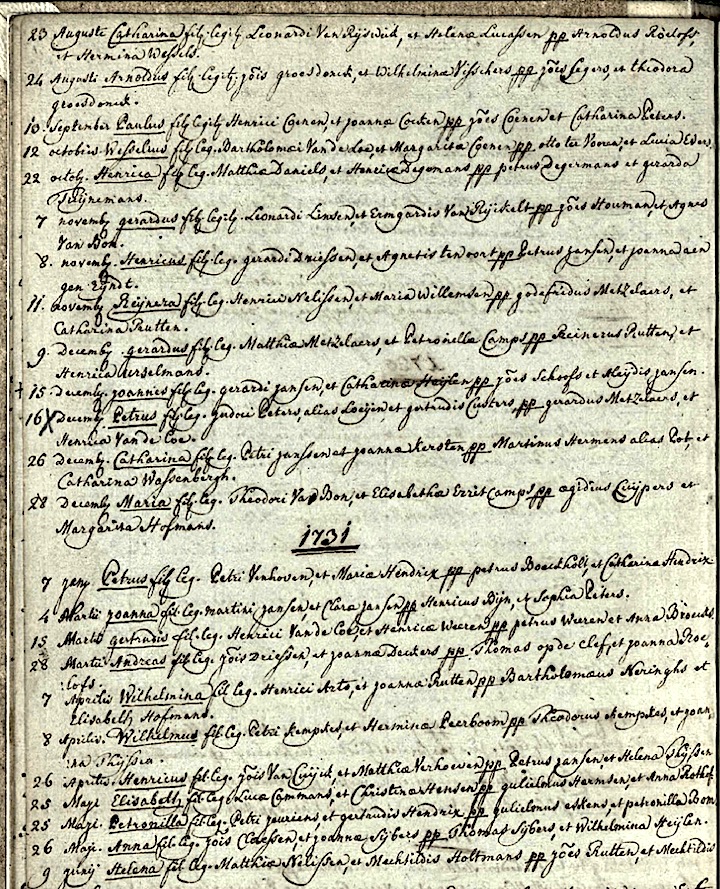 23 Auguste Catharina fil. legit. Leonardi Van Rijswick, et Helenæ Lucassen pp Arnoldus Roeloffs,
et Hermina Wessels.
24 Augusti Arnoldus fil. legit. jõis groesdonck, et Wilhelminæ Visschers pp jões Segers, et theodora
groesdonck.
10 September Paulus fil. legit. Henrici Coenen, et joannæ Cocken pp jões Coenen et Catharina Peters.
12 octobris Wesselus fil. leg. Bartholomæi Van de Loe, et Margaritæ Coenen pp. otto te Voren, et Lucia Evers,
22 octob. Henrica fil. leg. Matthiæ Daniels, et Henricæ Degemans pp petrus Degermans et gerarda
Tuijnemans.
7 novemb gerardus fil. legit. Leonardi Linsen, et Ermgardis Van Rijckelt pp jões Houman, et Agnes
Van Bon.
8. novemb. Henricus fil. leg. gerardi Driessen, et Agnetis ten oort pp Petrus jansen, et joanna aen
gen Eyndt.
11. novemb Reijnera fil. leg. Henrici Nelissen, et Maria Willemsen pp godefridus Metzelaers, et
Catharina Rutten.
9 Decemb. gerardus fil. leg. Matthiæ Metzelaers, et Petronellæ Camps pp Reinerus Rutten, et
Henrica Urselmans.
15 decemb. joannes fil. leg. gerardi jansen, et Catharinæ Heijlen pp jões Schoofs et Aleydis jansen.
16 X decemb Petrus fil. leg. judoci Peters alias Loeijen et gertrudis Custers, pp gerardus Metzelaers, et
Henrica Van de Loe.
26 decemb. Catharina fil. leg. Petri janssen et joannæ Kersten pp Martinus Hermens alias Pot, et
Catharina Wassenbergh.
28 Decemb Maria fil. leg. Theodori Van Bon, et Elisabethæ Errit Camps pp ægidius Cuijpers et
Margarita Hofmans.
1731
7 janŋ Petrus fil leg. Petri Venhoven, et Mariæ Hendrix pp petrus Boeckholt, et Catharina Hendrix
4 Martii joanna fil. leg. martini jansen, et Claræ jansen pp Henricus Dijn, et Sophia Peters.
15 Martii gertrudis fil. leg. Henrici Van de Loe, et Henricæ Weeren pp petrus Weren et Anna Broecks
28 Martii Andreas fil. leg. jõis Driessen, et joannæ Deckers pp Thomas op de Clef, et joanna Roe,
lofs.
7 Aprilis Wilhelmina fil leg. Henrici Arts, et joannæ Rutten pp Bartholomæus Neringhs et
Elisabeth Hofmans.
8 Aprilis. Wilhelmus fil. leg. Petri Kempkes, et Herminæ Peerboom pp Theodorus Kempkes, et joan,
na Thijssen.
26 Aprilis Henricus fil. leg. jõis Van Cuijck, et Matthiæ Verhoeven pp Petrus jansen et Helena Thijssen
25 Maji Elisabeth fil. leg. Lucæ Cammans, et Christinæ Hensen pp gulielmus Hermsen, et Anna Rothof
25 Maji. Petronilla fil. leg. Petri jeuriens et gertrudis Hendrix pp gulielmus eskens et petronilla Bom
26 Maji. Anna fil. leg. jõis Claessen, et joannæ Sijbers pp Thomas Sijbers, et Wilhelmina Heijlen.
9 junij Helena fil leg. Matthiæ Nelissen, et Mechtildis Holtmans pp jões Rutten, et Mechtildis